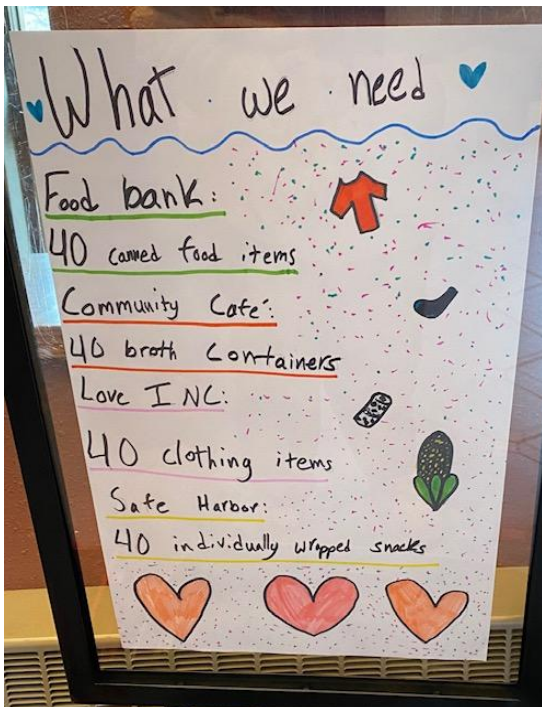 What we need
Food bank:
40 canned food items
Community Cafe':
40 broth Containers
Love INC:
40 clothing items
Safe Harbor:
40 individually wrapped snacks